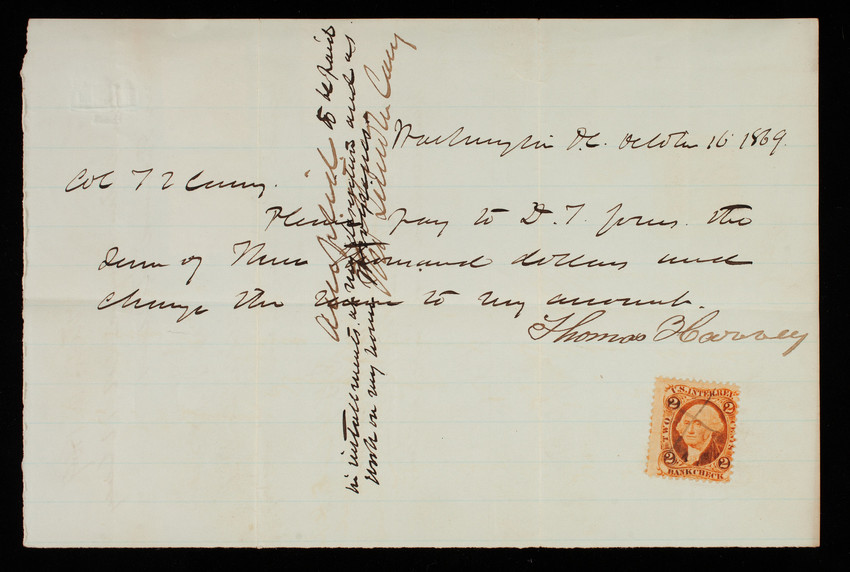 Washington D.C. October 16 1869.
Col T L Casey.
Please pay to D. T. Jones the
Sum of Nine Thousand dollars and
Charge the same to my account.
Thomas Harvey
accepted to be paid
in installments as and as
work on my house
U.S. INTER. REV.
2 2
TWO CENTS
2 2
BANK CHECK